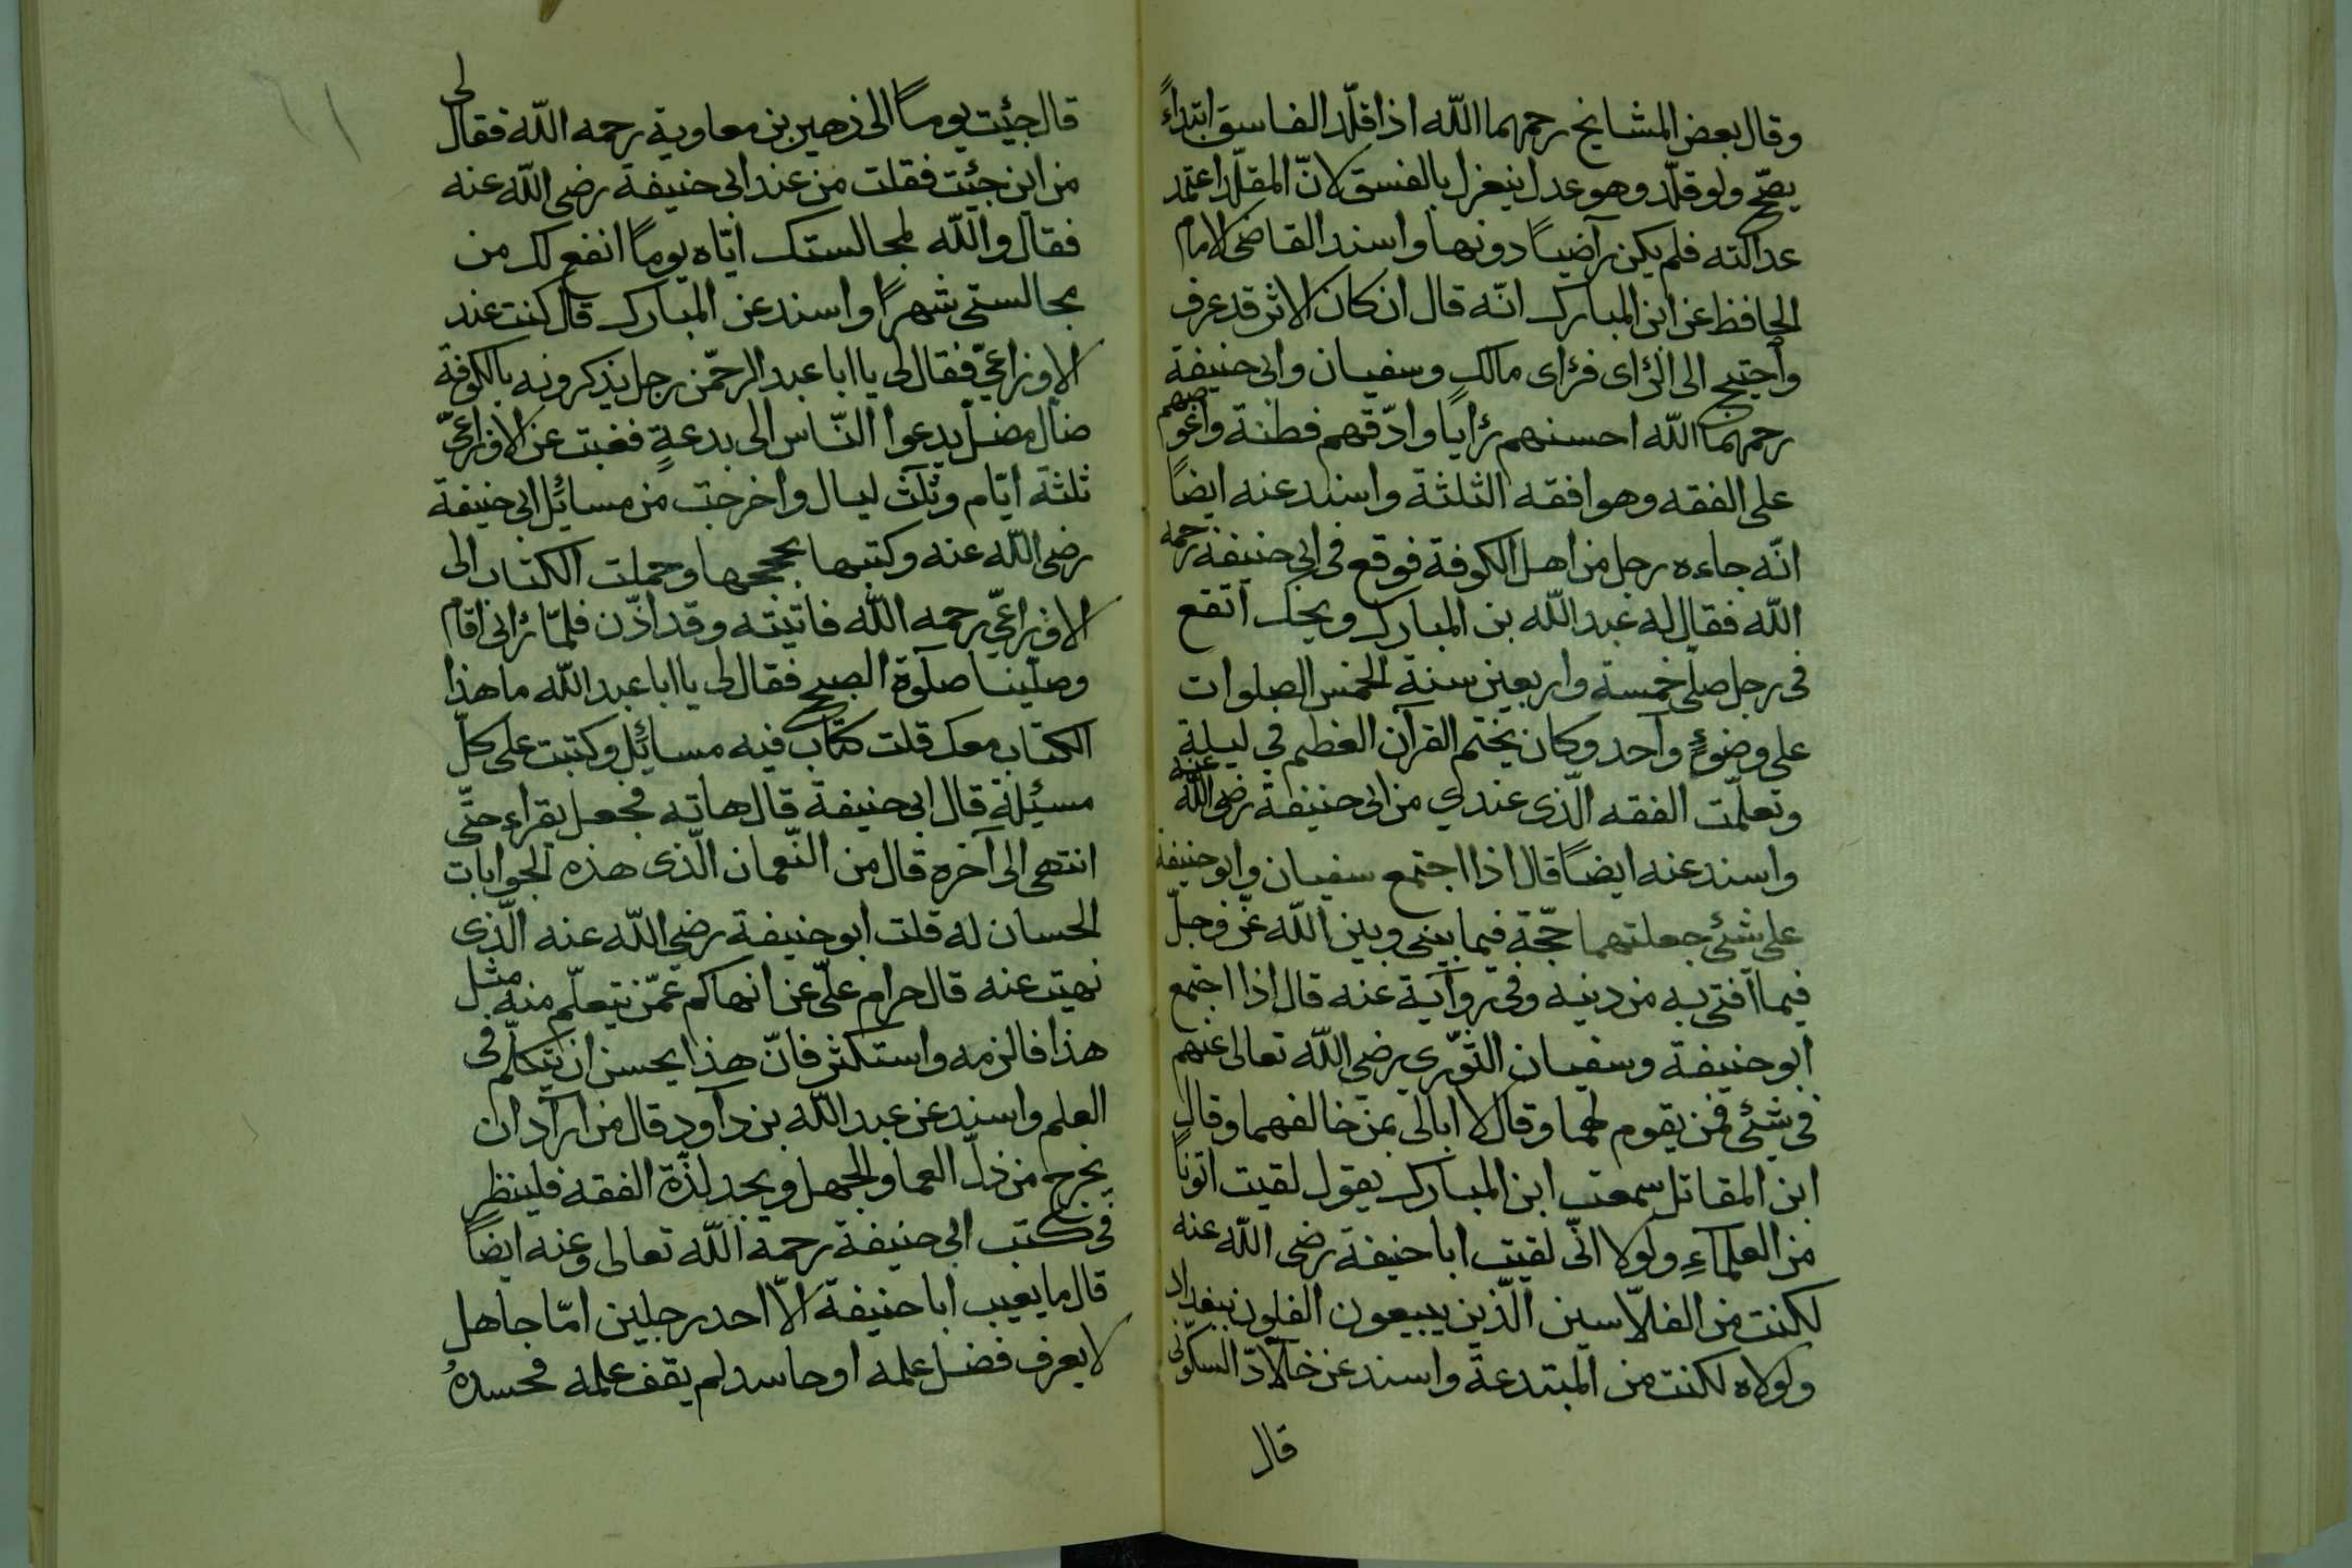 وقال بعض المشايخ رحمهما الله اذا قلّد الفاسق ابتداءً
يصحّ ولو قلّد وهو عدل ينعزل بالفسق لانّ المقلّد اعتمد
عدالته فلم يكن راضيًا دونها واسند القاضى الامام
الحافظ عن ابن المبارك انّه قال ان كان الاثر قد عرف
واحتيج الى الرّاى فرأى مالك وسفيان وابى حنيفة
رحمهما الله احسنهم رأيًا وادّقهم فطنة واغوصهم
على الفقه وهو افقه الثلثة واسند عنه ايضًا
انّه جاءه رجل من اهل الكوفة فوقع فى ابى حنيفة رحمه
الله فقال له عبد الله بن المبارك ويحك اتقع
فى رجل صلّى خمسة واربعين سنة الخمس الصلوات
على وضوءٍ واحد وكان يختم القرآن العظيم في ليلة
وتعلّمت الفقه الّذى عندي من ابى حنيفة رضى الله عنه
واسند عنه ايضًا قال اذا اجتمع سفيان وابو حنيفة
على شئ جعلتهما حجّة فيما بينى وبين الله عزّ وجلّ
فيما افتى به من دينه وفى رواية عنه قال اذا اجتمع
ابو حنيفة وسفيان الثّورى رضى الله تعالى عنهم
فى شئ فمن يقوم لهما وقال لا ابالى بمن خالفهما وقال
ابن المقاتل سمعت ابن المبارك يقول لقيت اتونًا
من العلماءِ ولولا انّى لقيت ابا حنيفة رضى الله عنه
لكنت من الفلّاسين الّذين يبيعون الفلوس ببغداد
ولولاه لكنت من المبتدعة واسند عن خلّاد السكونى
قال
قال جئيت يومًا الى زهير بن معاوية رحمه الله فقال لى
من اين جئيت فقلت من عند ابى حنيفة رضى الله عنه
فقال والله لمجالستك ايّاه يومًا انفع لك من
مجالستى شهرًا واسند عن المبارك قال كنت عند
الاوزاعىّ فقال لى يا ابا عبد الرحمن رجل يذكرونه بالكوفة
ضال مضلّ يدعوا النّاس الى بدعةٍ فغبت عن الاوزاعىّ
ثلثة ايّام وثلث ليال واخرجت من مسائل ابى حنيفة
رضى الله عنه وكتبها بحججها وحملت الكتاب الى
الاوزاعىّ رحمه الله فاتيته وقد اذّن فلمّا رآنى اقام
وصلّينا صلوة الصبح فقال لى يا ابا عبد الله ما هذا
الكتاب معك قلت كتاب فيه مسائل وكتبت على كلّ
مسئلة قال ابى حنيفة قال هاته فجعل يقراء حتّى
انتهى الى آخره قال من النّعمان الّذى هذه الجوابات
الحسان له قلت ابو حنيفة رضى الله عنه الّذى
نهيت عنه قال حرام علىّ عن انهاكم عمّن نتعلّم منه مثل
هذا فالزمه واستكثر فانّ هذا يحسن ان يتكلّم فى
العلم واسند عن عبد الله بن داود قال من اراد ان
يخرج من ذلّ العما والجهل ويجد لذّة الفقه فلينظر
فى كتب ابى حنيفة رحمه الله تعالى وعنه ايضًا
قال ما يعيب ابا حنيفة الّا احد رجلين امّا جاهل
لا يعرف فضل علمه او حاسد لم يقف علمه فحسدهُ